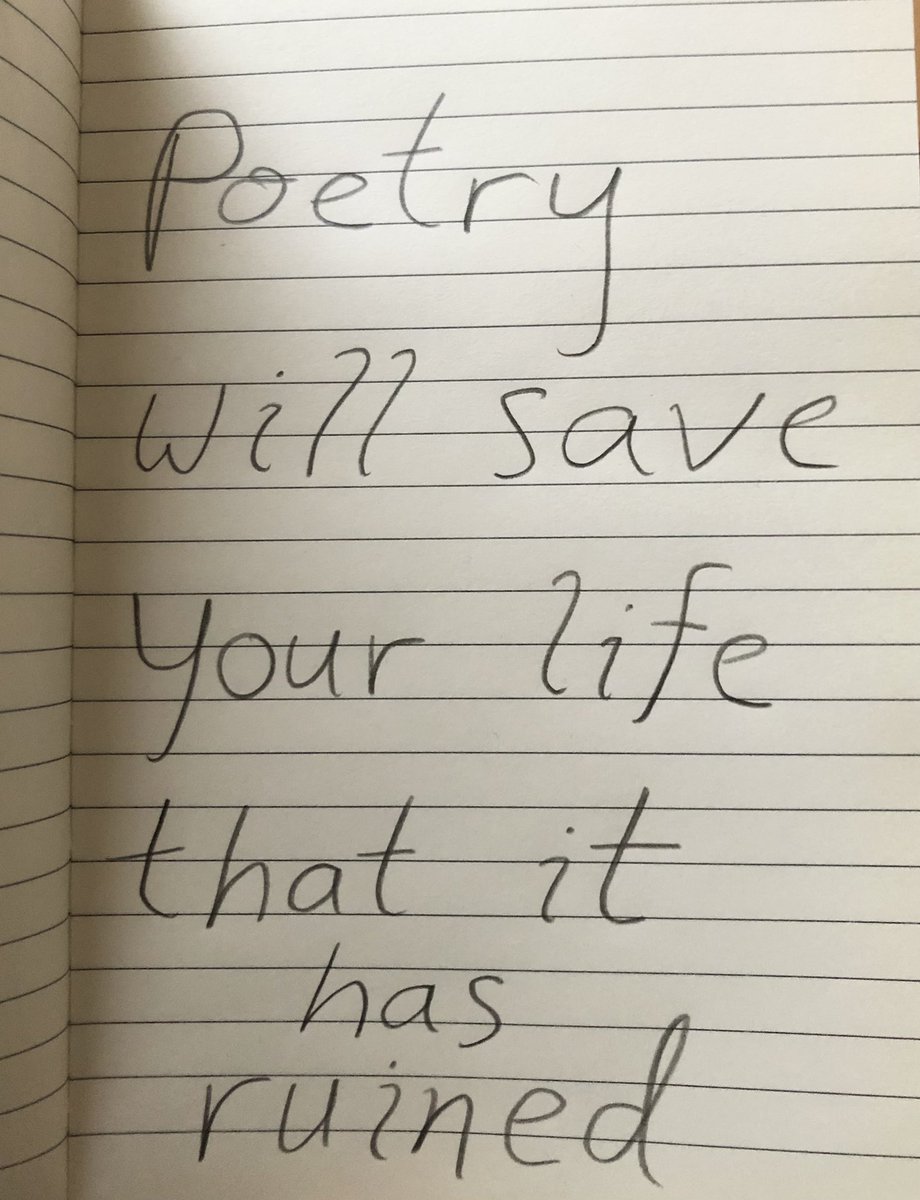 Poetry
will save
your life
that it
has
ruined